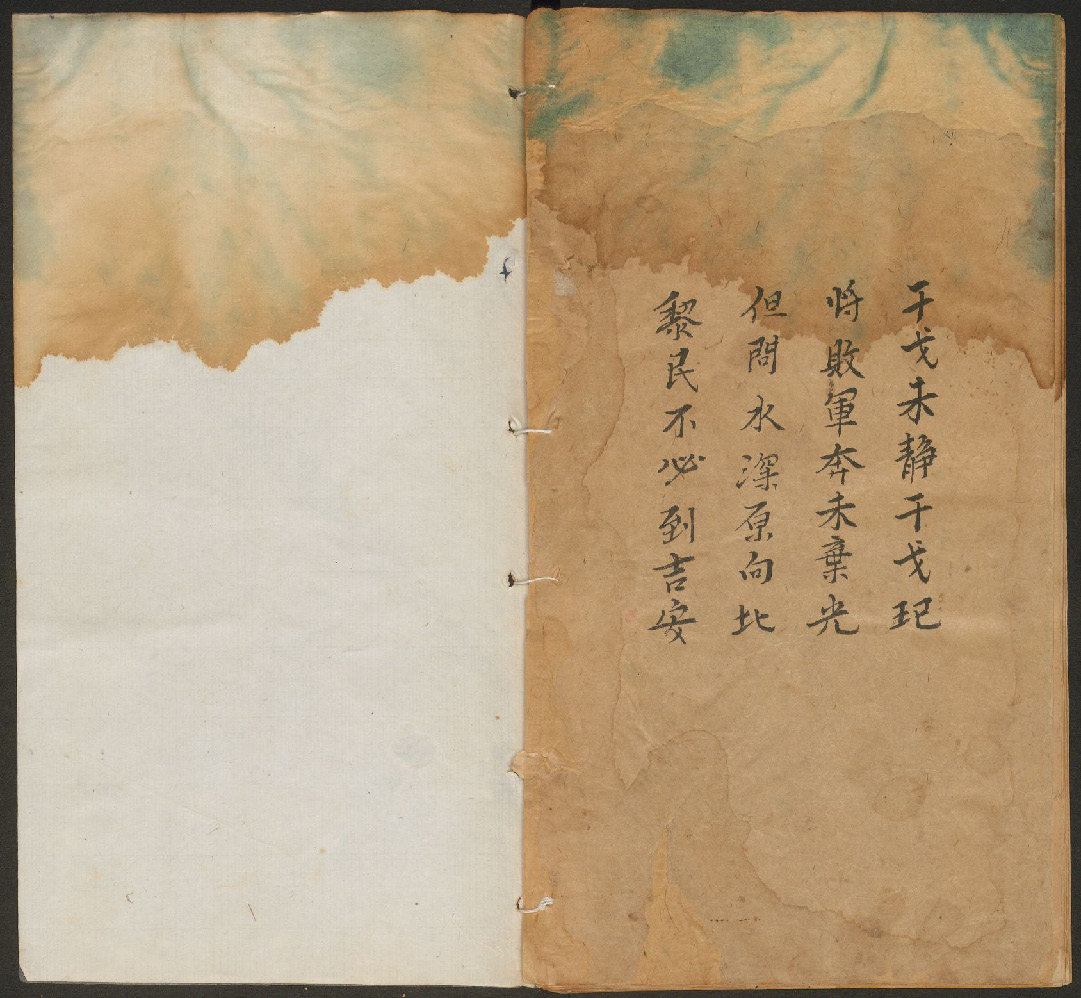 干戈未靜干戈玘
将敗軍奔未棄光
但問水深原向北
黎民不必到吉安